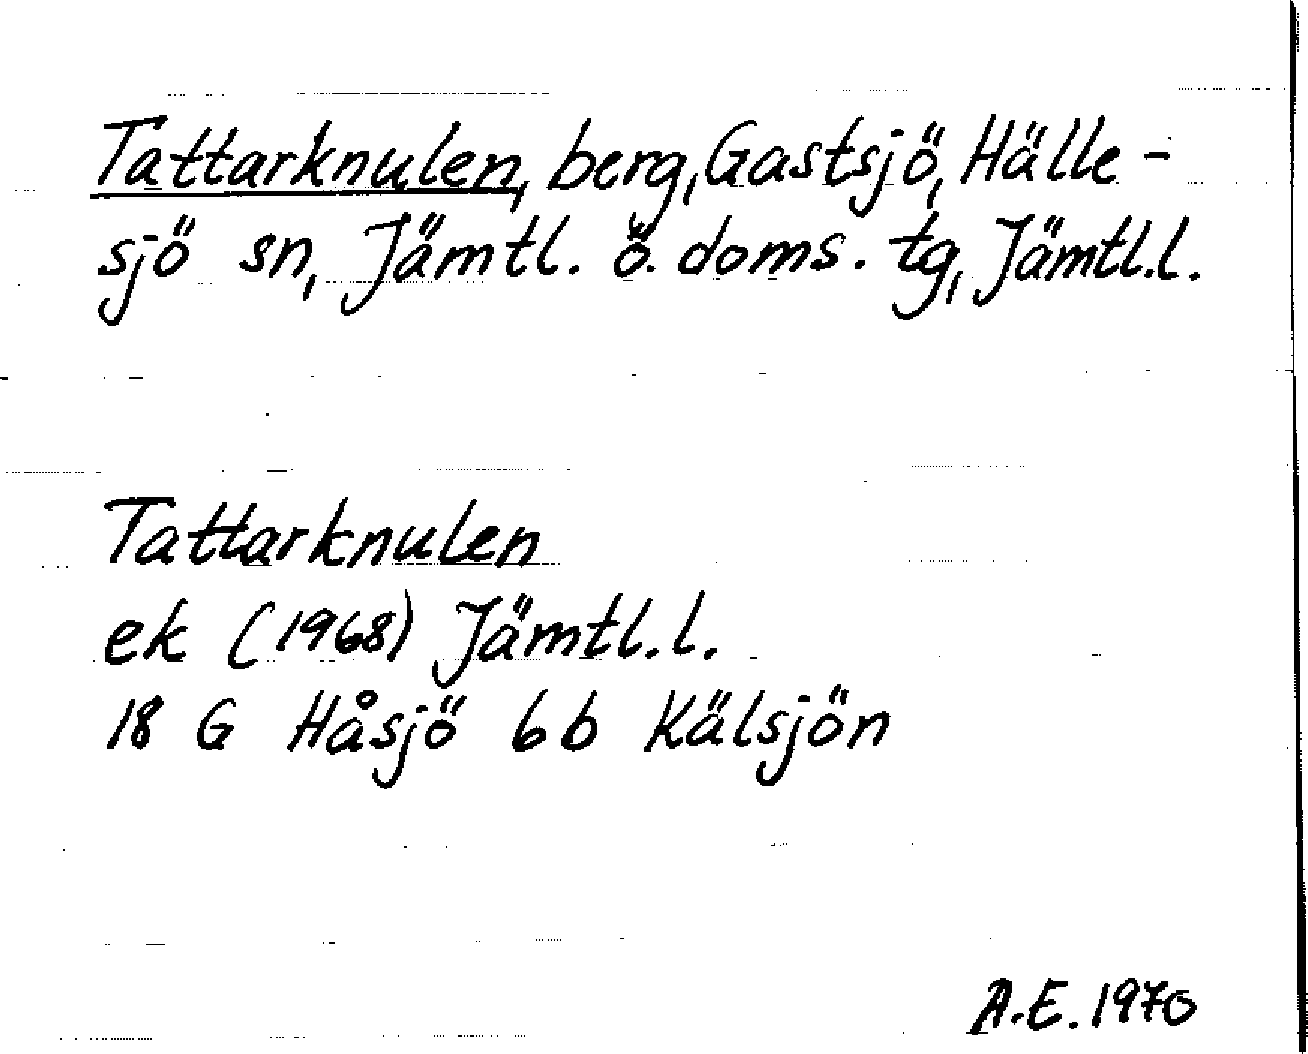 Tattarknulen, berg, Gastsjö, Hälle-
sjö sn, Jämtl. ö. doms. tg, Jämtl.l.
Tattarknulen
ek (1968) Jämtl.l.
18 G Håsjö 6b Kälsjön
A.E. 1970